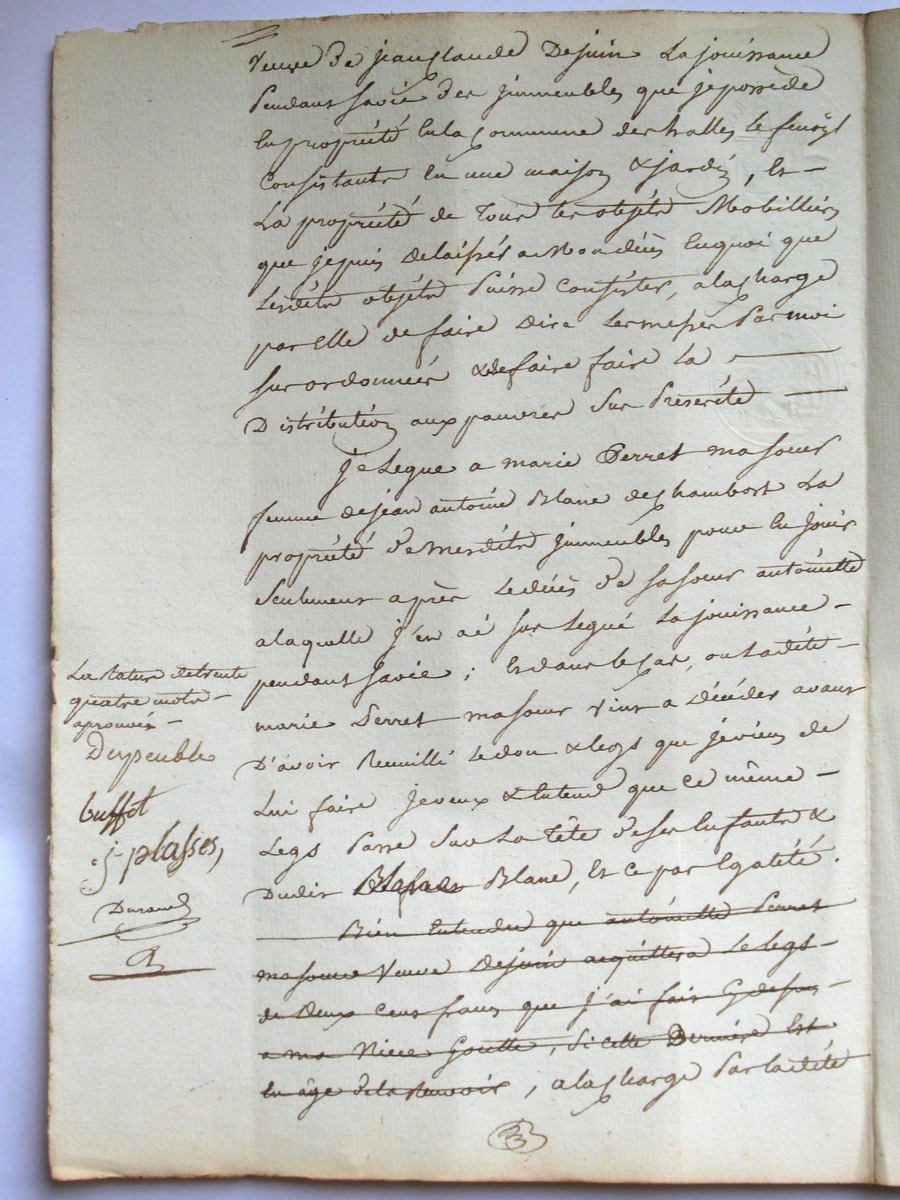 veuve de jean Claude Dejuin La jouissance
Pendant sa vie des immeubles que je possede
En propriété En la Commune des halles le fenoÿl
Consistants En une maison & jardin, Et -
La propriété de Tous les objets Mobilliers
que je puis delaisser a Mon décès En quoi que
Lesdits objets Puisse Consister, a la Charge
par Elle de faire dire Les messes Par moi
sus ordonnées & de faire faire La ———
Distribution aux pauvres Sus Préscrite ——
je Legue a marie Perret ma soeur
femme de jean antoine Blanc de Chambost La
propriété de mesdits immeubles pour En jouir
Seulement après Le décès de sa soeur antoinette
a laquelle j'en ai sus Legué La jouissance -
pendant sa vie ; Et dans le Cas, ou Ladite -
marie Perret ma soeur vint a Décéder avant
D'avoir Recueilli Le don & legs que je viens de
Lui faire je veux & Entend que Ce même -
Legs Passe Sur La Tête de ses Enfants &
Dudit Blanc, Et Ce par Egalité.
Bien Entendu que antoinette Perret
ma soeur Veuve Dejuin acquittera Le legs -
de Deux Cens francs que j'ai fait Cy dessus -
a ma Niece Goutte, Si Cette Derniere Est
En âge de la Recevoir, a la Charge Par ladite
La Rature de trente
quatre mots -
aprouvée -
Dupeuble
buffet
j plasses,
Durand